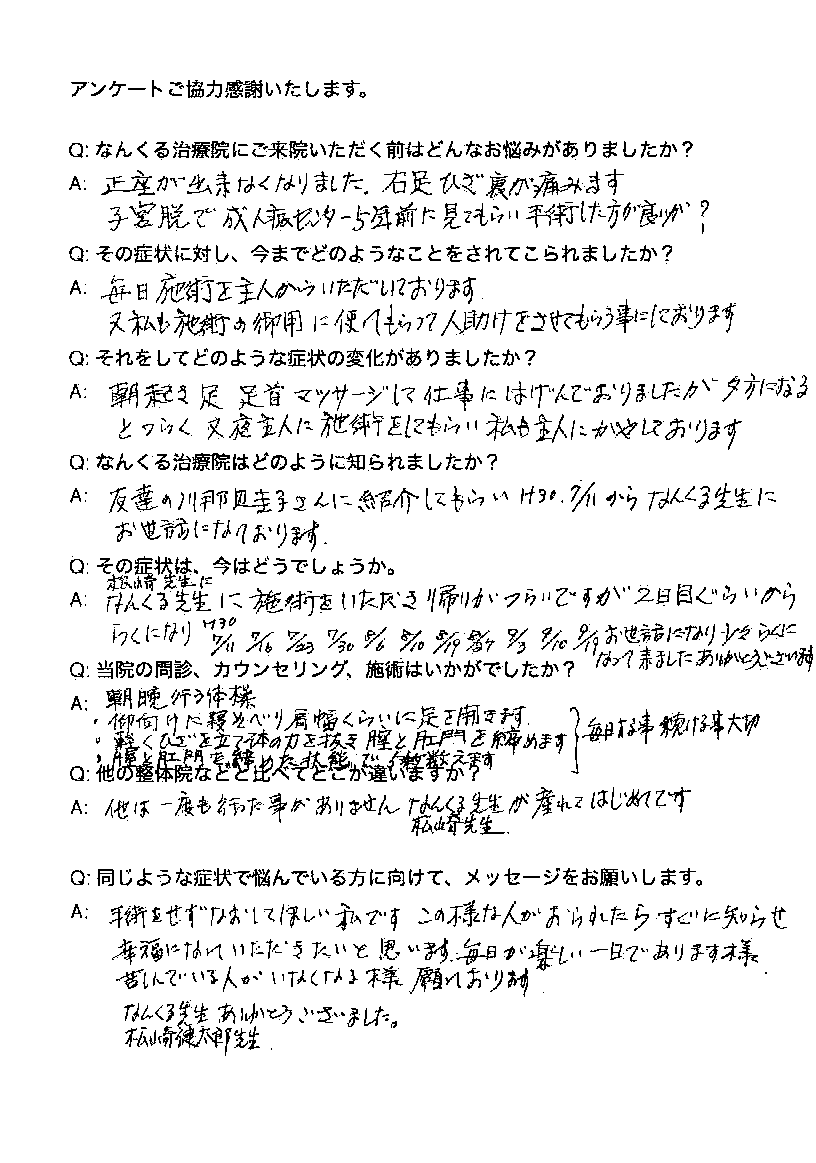 アンケートご協力感謝いたします。
Q: なんくる治療院にご来院いただく前はどんなお悩みがありましたか？
A: 正座が出来なくなりました。右足ひざ裏が痛みます
子宮脱で成人病センター5年前に見てもらい手術した方が良いか？
Q: その症状に対し、今までどのようなことをされてこられましたか？
A: 毎日施術を主人からいただいております
又私も施術の御用に使ってもらって人助けをさせてもらう事にしております
Q: それをしてどのような症状の変化がありましたか？
A: 朝起き足 足首マッサージして仕事にはげんでおりましたが夕方になる
とつらく又夜主人に施術をしてもらい私も主人にかやしております
Q: なんくる治療院はどのように知られましたか？
A: 友達の川那貝圭子さんに紹介してもらいH30.7/11からなんくる先生に
お世話になっております.
Q: その症状は、今はどうでしょうか。
松崎先生に
A: なんくる先生に施術をいただき帰りがつらいですが2日目ぐらいから
らくになり H30 7/11 7/16 7/23 7/30 8/6 8/10 8/19 8/27 9/3 9/10 9/19 お世話になり少々らくに
なって来ましたありがとうございます
Q: 当院の問診、カウンセリング、施術はいかがでしたか？
A: 朝晩行う体操
・仰向けに寝そべり肩幅くらいに足を開きます
・軽くひざを立て体の力を抜き膣と肛門を締めます 毎日する事続ける事大切
・膣と肛門を締めた状態で 数えます
Q: 他の整体院などと比べてどこが違いますか？
A: 他は一度も行った事がありませんなんくる先生が産れてはじめてです
松崎先生.
Q: 同じような症状で悩んでいる方に向けて、メッセージをお願いします。
A: 手術をせずなおしてほしい私です この様な人がおられたらすぐに知らせ
幸福になっていただきたいと思います.毎日が楽しい一日であります様
苦しんでいる人がいなくなる様願っております
なんくる先生ありがとうございました。
松崎健太郎先生.